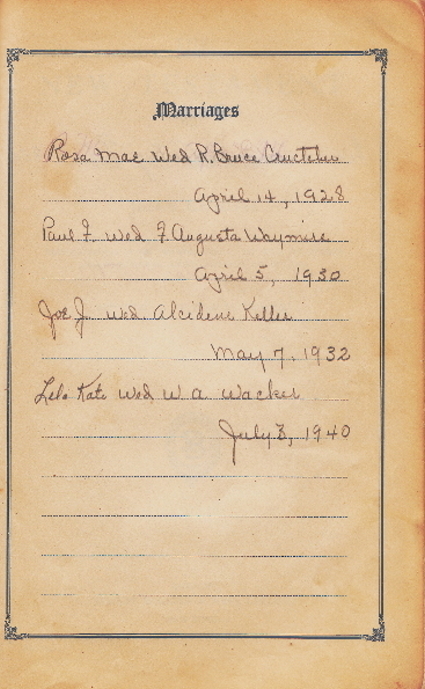 Marriages
Rosa Mae Wed R. Bruce Crutcher
April 14, 1928
Paul F. Wed F Augusta Waymire
April 5, 1930
Joe J. Wed Alcidene Keller
May 7, 1932
Lela Kate Wed W. A. Wacker
July 3, 1940